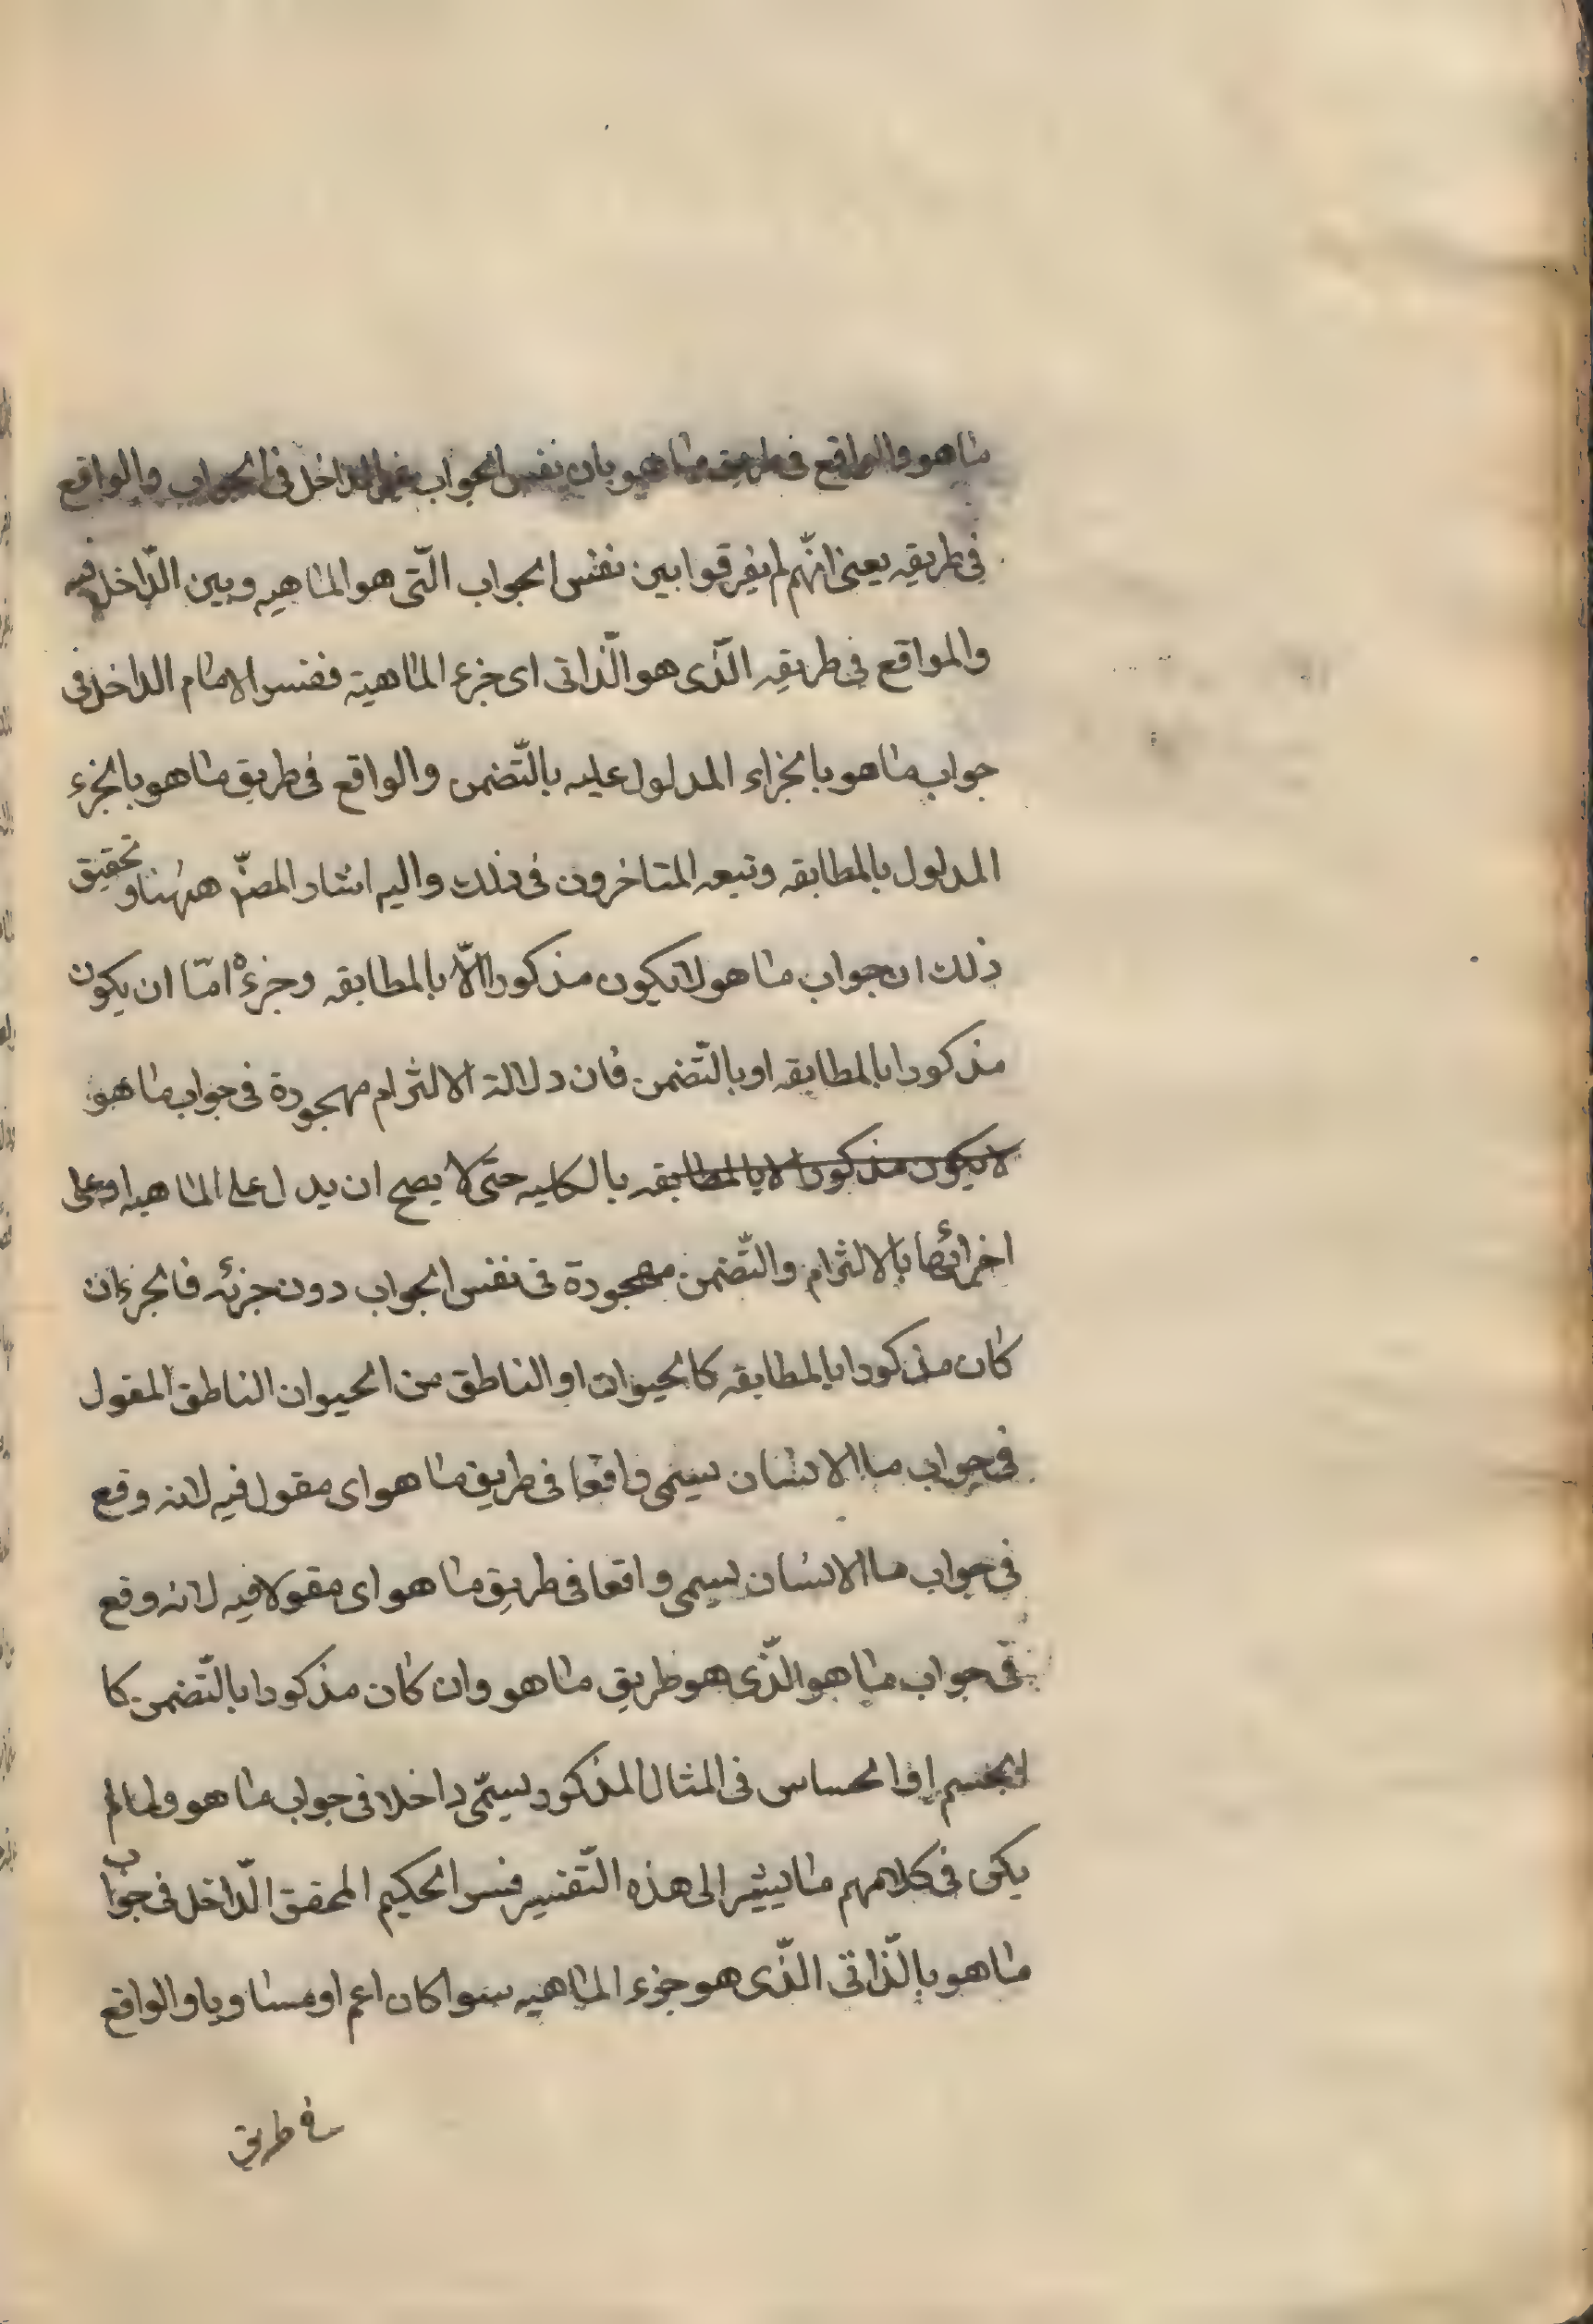 ماهو والواقع فى طريق ماهو بان نفس الجواب غير الداخل فى الجواب والواقع
فى طريقه يعنى انّهم لم يفرقوا بين نفس الجواب الّتى هو الماهيه وبين الدّاخل فيه
والمواقع فى طريقه الّذى هو الّذاتى اى جزء الماهية ففسر الامام الداخل فى
جواب ماهو بالجزاء المدلول عليه بالتّضمن والواقع فى طريق ماهو بالجزء
المدلول بالمطابقه وتبعه المتاخرون فى ذلك واليه اشار المصنّ ههنا وتحقيق
ذلك ان جواب ماهو لا يكون مذكورا الّا بالمطابقه وجزءه امّا ان يكون
مذكورا بالمطابقه او بالتّضمن فان دلالة الالتزام مهجورة فى جواب ماهو
لا يكون مذكورا الا بالمطابقه بالكليه حتى لا يصح ان يدل على الماهيه او على
اجزائها بالالتزام والتّضمن مهجورة فى نفس الجواب دون جزئه فالجزء ان
كان مذكورا بالمطابقه كالحيوان او الناطق من الحيوان الناطق المقول
فى جواب ما الانسان يسمى واقعا فى طريق ماهو اى مقول فيه لانه وقع
فى جواب ما الانسان يسمى واقعا فى طريق ماهو اى مقولا فيه لانه وقع
فى جواب ماهو الّذى هو طريق ماهو وان كان مذكورا بالتّضمن كا
لجسم او الحساس فى المثال المذكور يسمّى داخلا فى جواب ماهو ولما لم
يكن فى كلامهم ما يشير الى هذه التّفسير فسر الحكيم المحقق الدّاخل فى جواب
ماهو بالّذاتى الّذى هو جزء الماهيه سوا كان اعم او مساويا والواقع
فى طريق